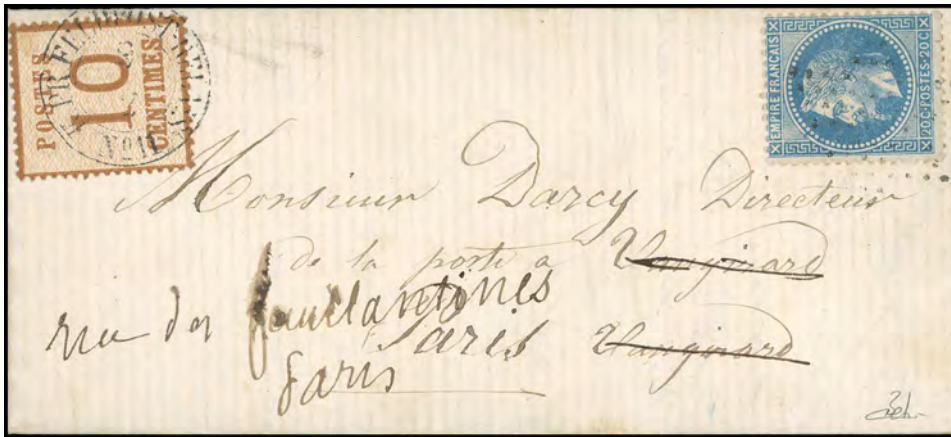 POSTES
10
CENTIMES
No 11
EMPIRE FRANÇAIS
20C-POSTES-20C
Monsieur Darcy Directeur
de la poste a Vaugirard
rue des feuillantines
Paris Vaugirard
Paris